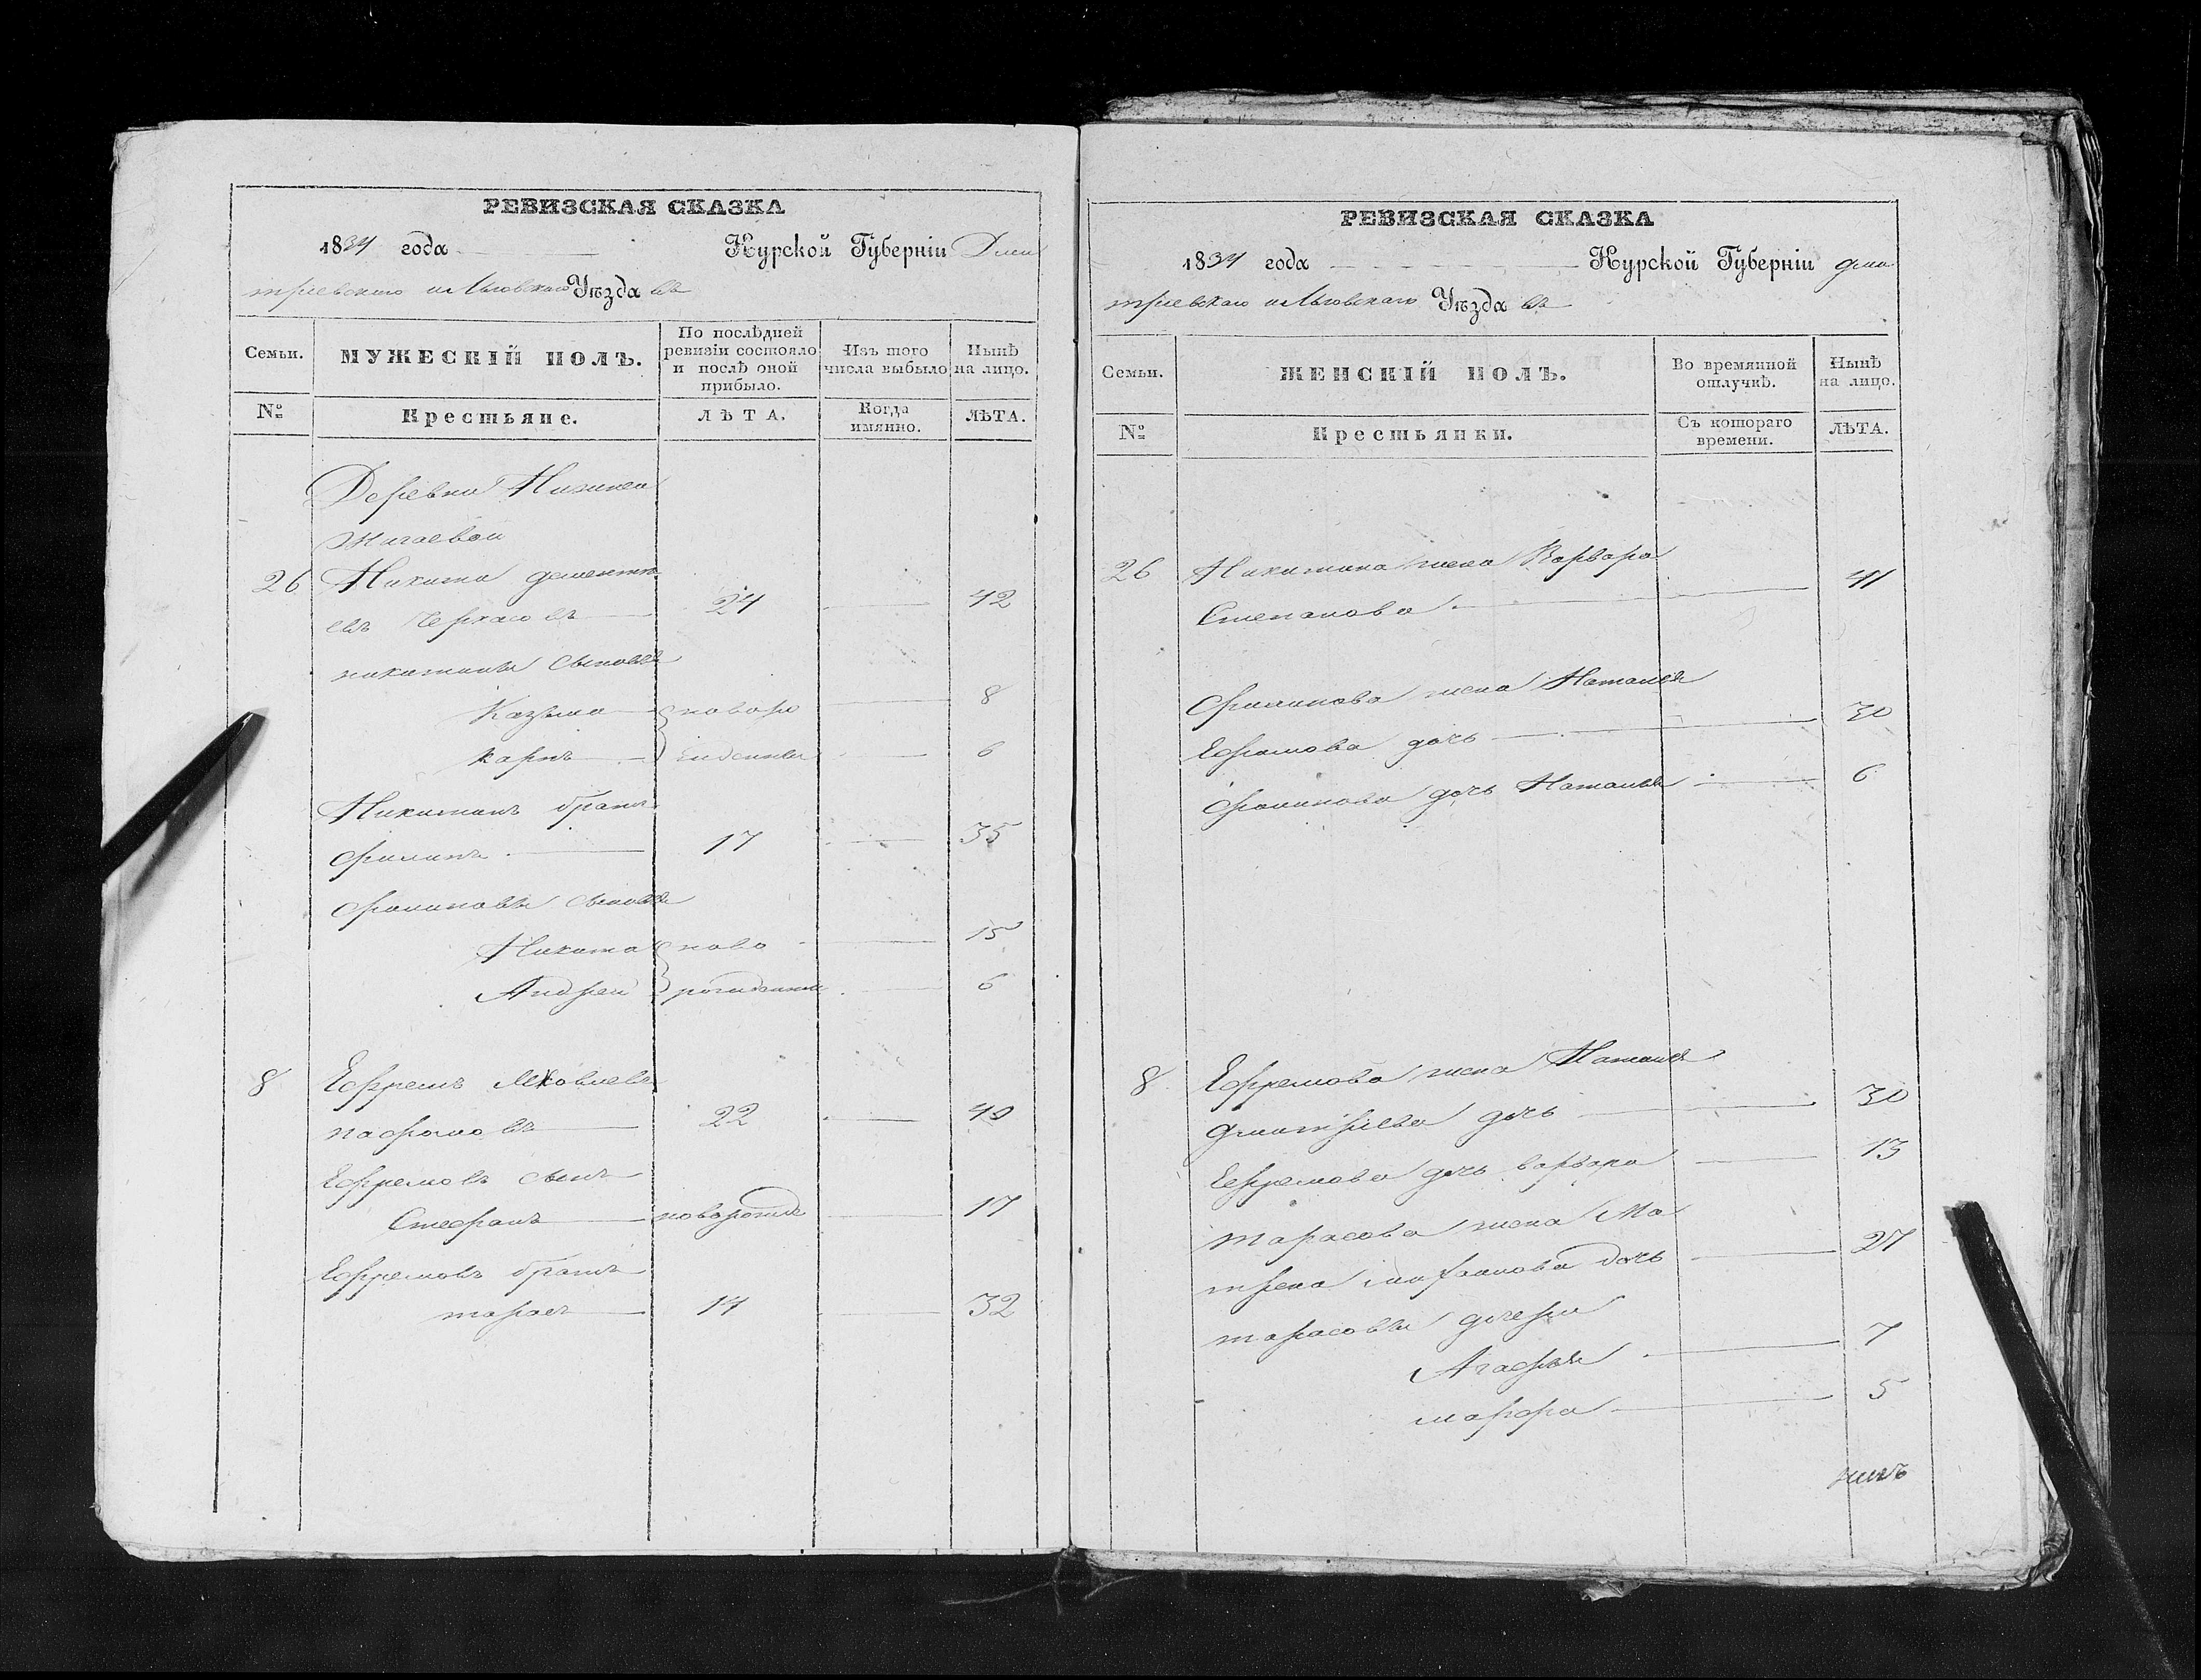 РЕВИЗСКАЯ СКАЗКА
1834 года Курской Губерніи Дми
тріевскаго и Льговскаго Уѣзда въ
Семьи. МУЖЕСКІЙ ПОЛЪ. По послѣдней ревизіи состояло и послѣ оной прибыло. Изъ того числа выбыло Нынѣ на лицо.
№ Крестьяне. ЛѢТА. Когда имянно. ЛѢТА.
Деревни Нижней
Жигаевой
26 Никита дементь
евъ Черкасовъ 24 42
никитины сыновья
Казьма новоро 8
карпъ жденны 6
Никитинъ братъ
Филипъ 17 35
Филиповы сыновья
Никита ново 15
Андрей рожденны 6
8 Ефремъ Яковлевъ
пафомовъ 22 40
Ефремовъ сынъ
Стефанъ новорожде 17
Ефремовъ братъ
тарасъ 14 32
РЕВИЗСКАЯ СКАЗКА
1834 года Курской Губерніи дми
тріевскаго и Льговскаго Уѣзда въ
Семьи. ЖЕНСКІЙ ПОЛЪ. Во времянной отлучкѣ. Нынѣ на лицо.
№ Крестьянки. Съ котораго времени. ЛѢТА.
26 Никитина жена Варвара
Степанова 41
Филипова жена Наталья
Ефремова дочь 30
Филипова дочь Наталья 6
8 Ефремова жена Наталья
дмитріева дочь 30
Ефремова дочь варвара 13
тарасова жена Ма
трена дочь 27
тарасовы дочери
Агафья 7
марфа 5